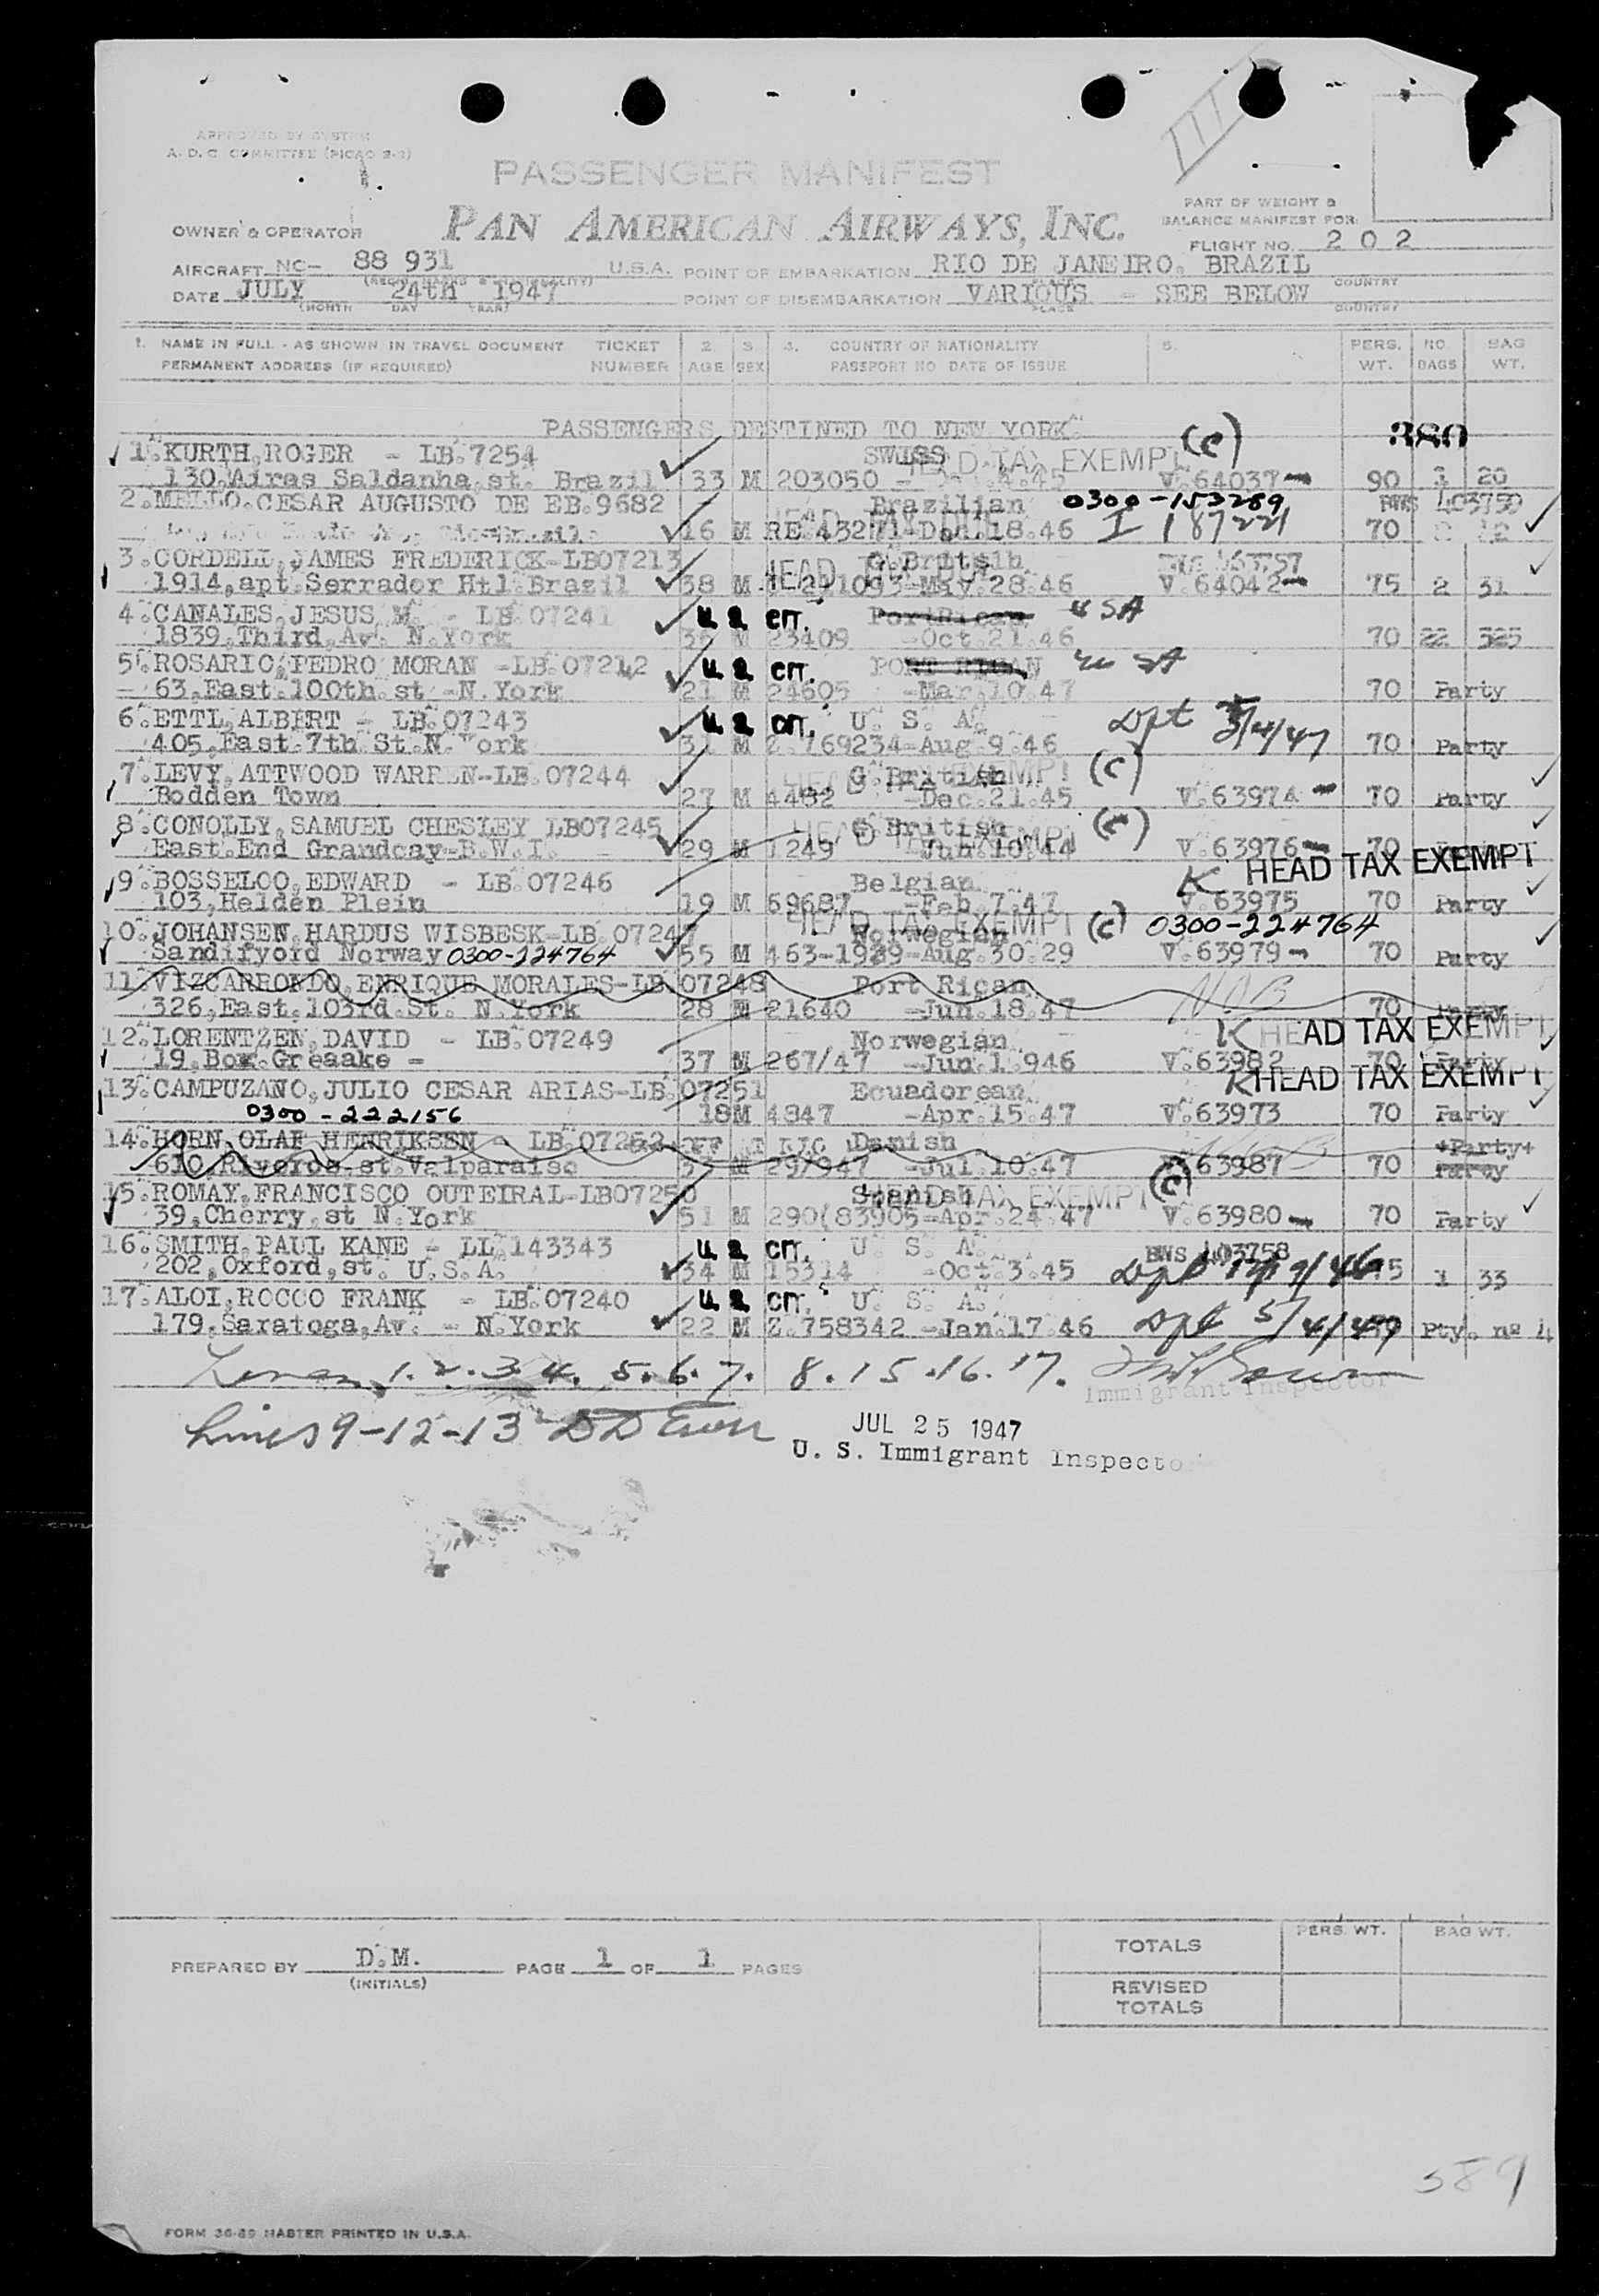 APPROVED BY SYSTEM
A. D. C. COMMITTEE (PICAO 2-2)
PASSENGER MANIFEST
PAN AMERICAN AIRWAYS, INC.
PART OF WEIGHT &
BALANCE MANIFEST FOR:
OWNER & OPERATOR
FLIGHT NO. 202
AIRCRAFT NC- 88 931 U.S.A. POINT OF EMBARKATION RIO DE JANEIRO. BRAZIL
COUNTRY
DATE JULY 24th 1947 POINT OF DISEMBARKATION VARIOUS - SEE BELOW
(MONTH DAY YEAR) PLACE COUNTRY
1. NAME IN FULL - AS SHOWN IN TRAVEL DOCUMENT TICKET 2. 3 4. COUNTRY OF NATIONALITY 5. PERS. NO. BAG
PERMANENT ADDRESS (IF REQUIRED) NUMBER AGE SEX PASSPORT NO DATE OF ISSUE WT. BAGS WT.
PASSENGERS DESTINED TO NEW YORK. (c) 380
1. KURTH, ROGER - LB. 7254 SWISS HEAD TAX EXEMPT
130. Airas Saldanha, st. Brazil 33 M 203050 - 4.45 V. 64037 90 20
2. MELLO. CESAR AUGUSTO DE EB. 9682 Brazilian 0300-153289 403759
16 M RE. 43271-Dec. 18.46 I 187221 70
3. CORDELL, JAMES FREDERICK-LB07213 G. British
1914, apt. Serrador Htl. Brazil 38 M May. 28.46 V. 64042 75 2 31
4. CANALES, JESUS M. - LB. 07241 U. S. CIT. PortRican USA
1839, Third, Av. N. York 36 M 23409 -Oct. 21.46 70
5. ROSARIO, PEDRO MORAN -LB. 07242 U. S. CIT. PORT RICAN USA
63, East. 100th. st -N. York 21 M 24605 -Mar. 10.47 70 Party
6. ETTL, ALBERT - LB. 07243 U. S. CIT. U. S. A.
405, East. 7th St. N. York 31 M Z. 769234-Aug. 9.46 Dpt 3/4/47 70 Party
7. LEVY, ATTWOOD WARREN-LB. 07244 G. British HEAD TAX EXEMPT (c)
Bodden Town 27 M 4482 -Dec. 21.45 V. 63974 70 Party
8. CONOLLY, SAMUEL CHESLEY LB07245 G British HEAD TAX EXEMPT (c)
East. End Grandcay-B.W.I. 29 M 1249 -Jun. 10.44 V. 63976 70
9. BOSSELOO, EDWARD - LB. 07246 Belgian K HEAD TAX EXEMPT
103, Helden Plein 19 M 69687 -Feb. 7.47 V. 63975 70 Party
10. JOHANSEN, HARDUS WISBESK-LB. 07247 Norwegian HEAD TAX EXEMPT (c) 0300-224764
Sandifyord Norway 0300-224764 55 M 463-1929-Aug. 30.29 V. 63979 70 Party
11. VIZCARRONDO, ENRIQUE MORALES-LB. 07248 Port Rican NOB
326, East. 103rd. St. N. York 28 M 21640 -Jun. 18.47 70 Party
12. LORENTZEN, DAVID - LB. 07249 Norwegian K HEAD TAX EXEMPT
19. Box. Greaake - 37 M 267/47 -Jun. 1.946 V. 63982 70 Party
13. CAMPUZANO, JULIO CESAR ARIAS-LB. 07251 Ecuadorean K HEAD TAX EXEMPT
0300-222156 18M 4847 -Apr. 15.47 V. 63973 70 Party
14. HORN, OLAF HENRIKSEN - LB. 07252 Danish NOB +Party+
610, Riveros, st. Valparaiso 33 M 29/947 -Jul. 10.47 63987 70 Party
15. ROMAY, FRANCISCO OUTEIRAL-LB07250 Spanish HEAD TAX EXEMPT (c)
39, Cherry, st N. York 51 M 290(83905-Apr. 24.47 V. 63980 70 Party
16. SMITH, PAUL KANE - LL. 143343 U. S. CIT. U S. A. BWS 403758
202, Oxford, st. U.S.A. 34 M 15314 -Oct. 3.45 Dpt 1 33
17. ALOI, ROCCO FRANK - LB. 07240 U. S. CIT. U. S. A.
179, Saratoga, Av. - N. York 22 M Z. 758342 -Jan. 17.46 Dpt 5/4/47 Pty. nº 4
Lines 1. 2. 3. 4. 5. 6. 7. 8. 15. 16. 17.
Immigrant Inspector
Lines 9-12-13
JUL 25 1947
U. S. Immigrant Inspector
PREPARED BY D.M. PAGE 1 OF 1 PAGES
(INITIALS)
TOTALS PERS. WT. BAG WT.
REVISED
TOTALS
589
FORM 36-89 MASTER PRINTED IN U.S.A.